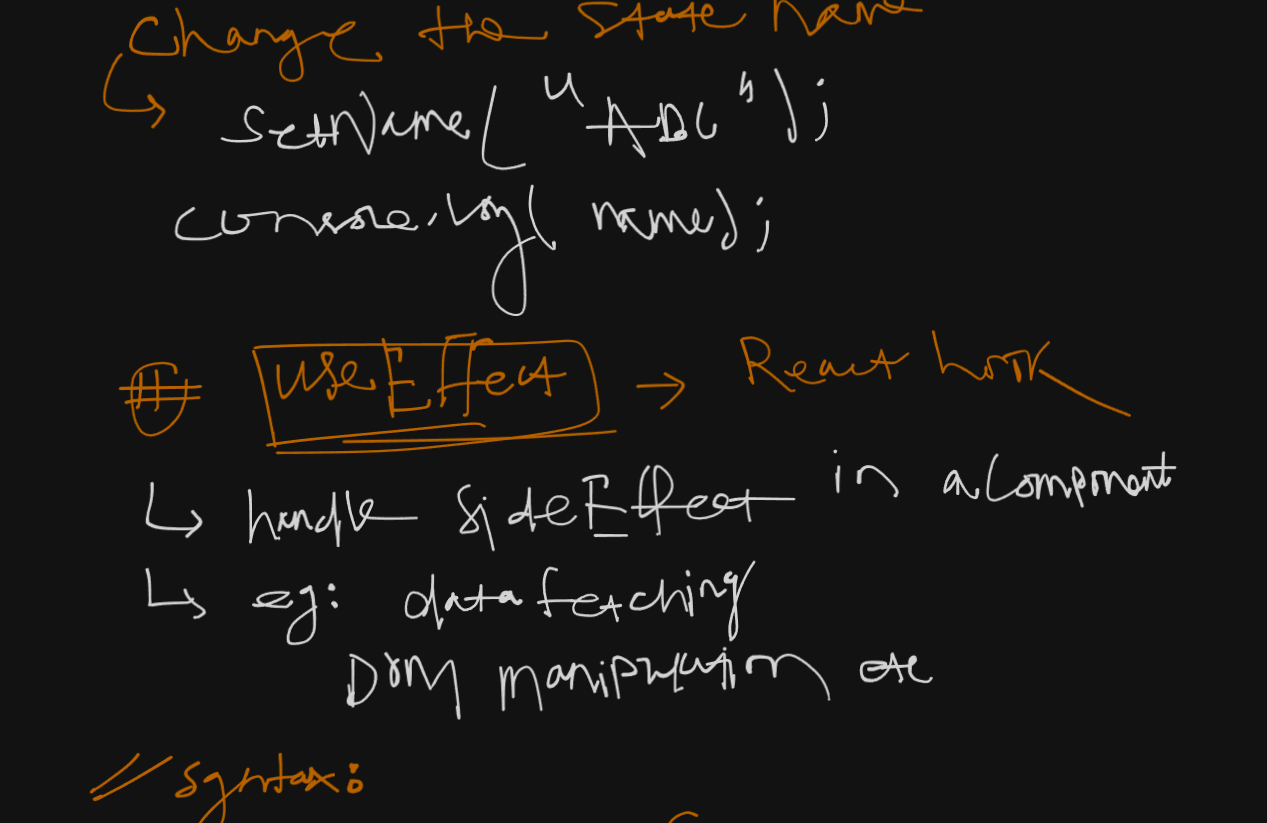 Change the state name
setName("ABC");
console.log(name);
# useEffect → React hook
↳ handle sideEffect in a Component
↳ eg: data fetching
DOM manipulation etc
// syntax: